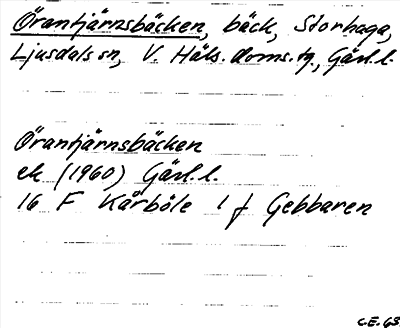 Örantjärnsbäcken, bäck, Storhaga,
Ljusdals sn, V. Häls. doms.tg., Gävl.l.
Örantjärnsbäcken
ek (1960) Gävl.l.
16 F Kårböle 1 f Gebbaren
C.E. 63